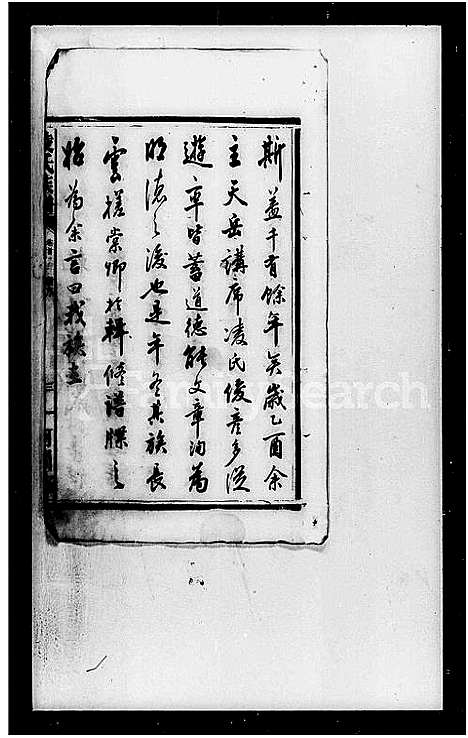 斯蓋千有餘年矣歲乙酉余
主天岳講席凌氏俊彥多從
遊卒皆蓄道德能文章洵為
明德之後也是年冬其族長
雲槎棠卿於輯修譜牒之
始為余言曰我族立
FamilySearch